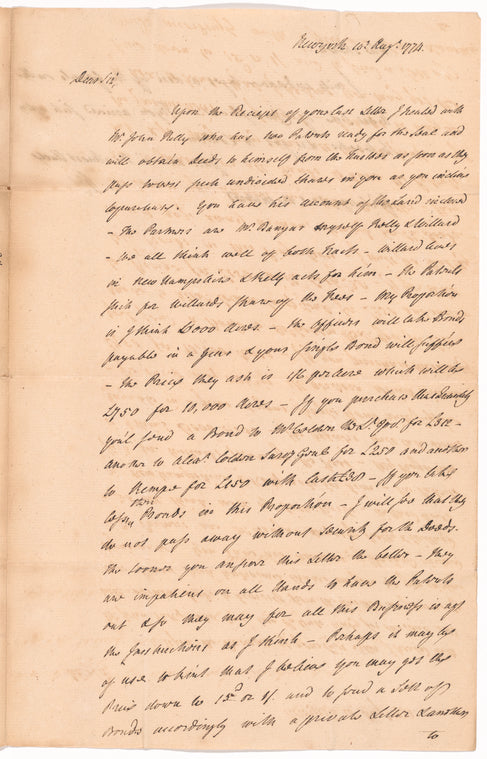 Newyork 10th Augt. 1774.
Dear Sir,
Upon the Receipt of your last Letter I treated with
Mr. John Kelly who has two Patents ready for the Seal and
will obtain Deeds to himself from the Trustees as soon as they
pass to vest such undivided Shares in you as you incline
to purchase. You have his account of the Land inclosed
- The Partners are Mr. Banyar myself Kelly & Willard
- We all think well of both Tracts - Willard lives
in New Hampshire & Kelly acts for him - The Patents
stick for Willards Share of the Fees - My Proportion
is I think Acres. - The Officers will take Bonds
payable in a Year & your single Bond will suffice
- The Price they ask is 1/6 per Acre which will be
£750 for 10,000 Acres - If you purchase that Quantity
you'l send a Bond to Mr. Colden the Lt. Govr. for £312 -
another to Alexr. Colden Survr. Genl. for £250 and another
to Kempe for £150 with Cash £38 - If you take
less then Bonds in this Proportion - I will see that they
do not pass away without Security for the Deeds.
The sooner you answer this Letter the better - They
are impatient on all Hands to have the Patents
out & so they may for all this Business is agt
the Instructions as I think - Perhaps it may be
of use to hint that I believe you may get the
Price down to 15d or 1/. and to send a Sett of
Bonds accordingly with a private Letter
to